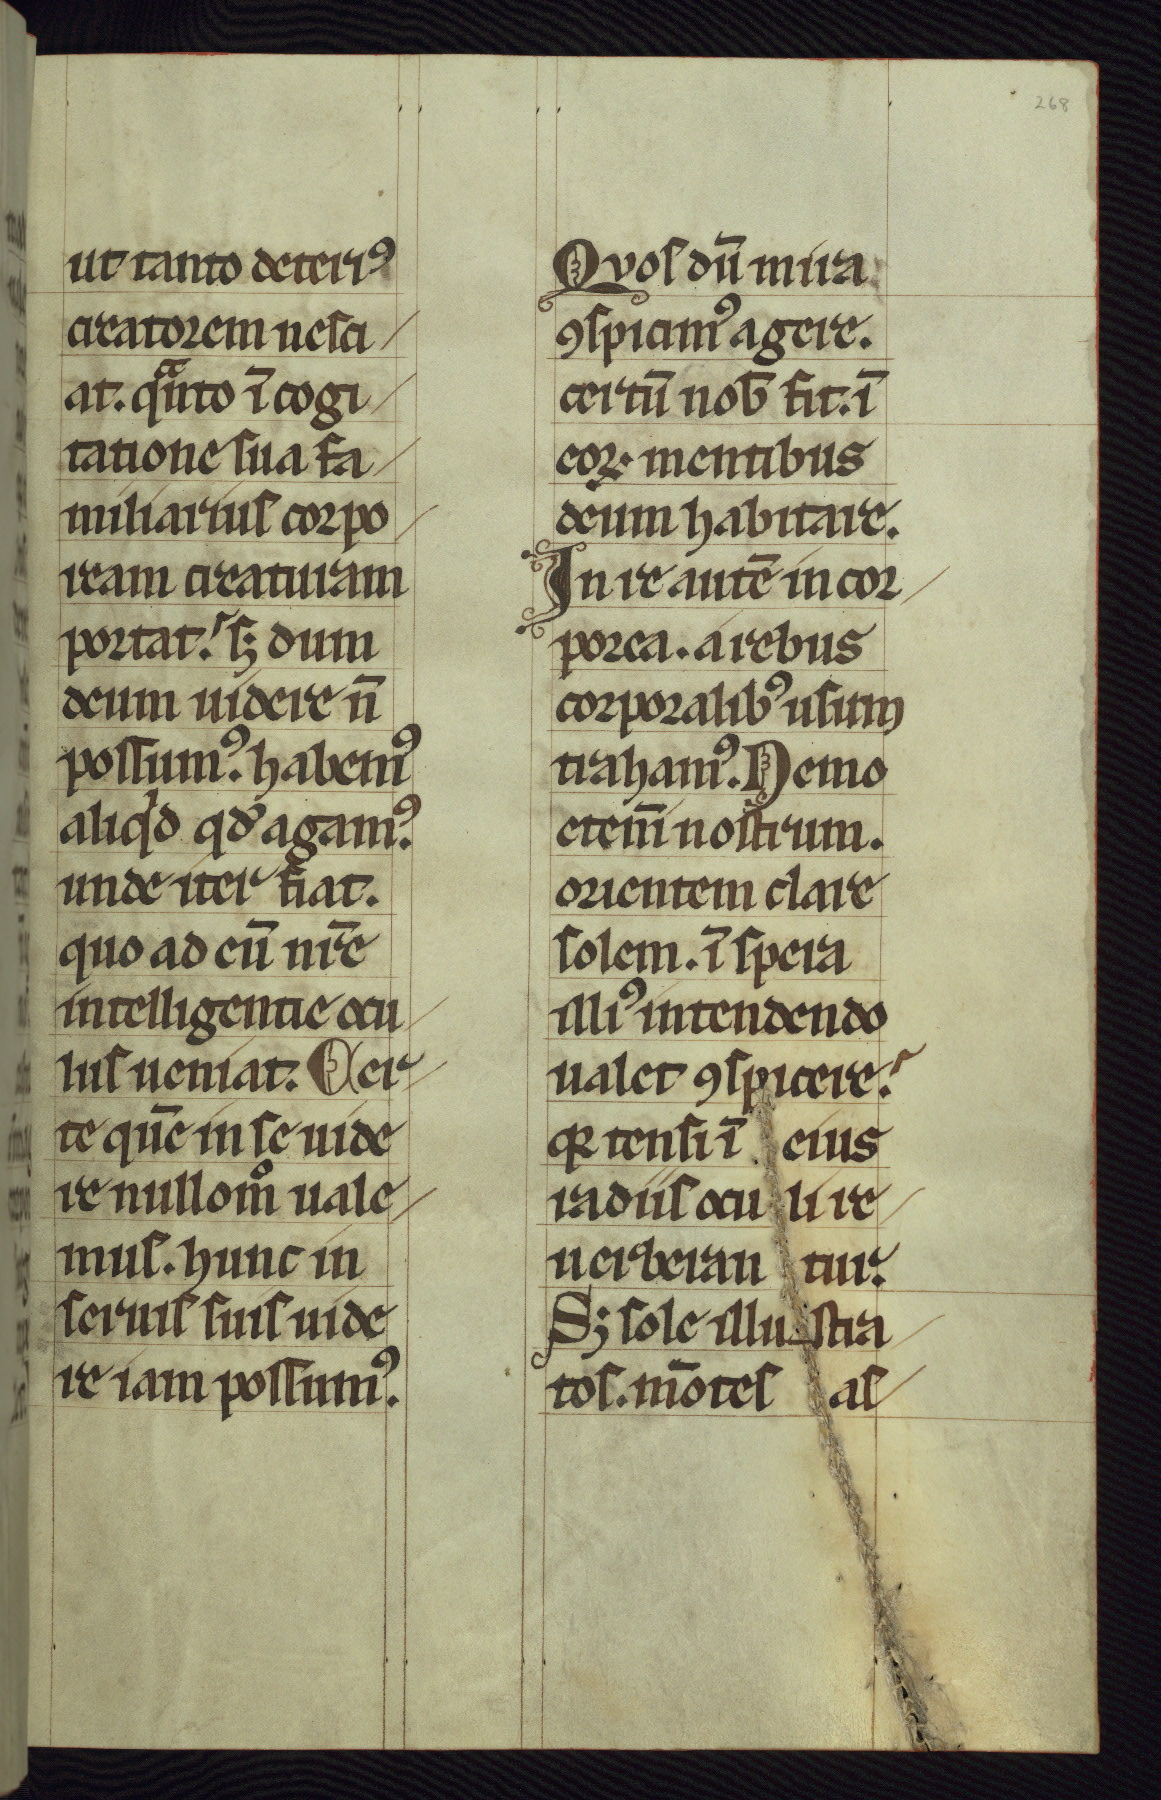 268
ut tanto deteriꝰ
creatorem nesci
at. qͣnto ī cogi
tatione sua fa
miliarius corpo
ream creaturam
portat. sꝫ dum
deum uidere n̄
possumꝰ. habemꝰ
aliqͥd qd̓ agamꝰ.
unde iter fiat.
quo ad eū nr̄e
intelligentie ocu
lus ueniat. Cer
te quē in se uide
re nullom̊ uale
mus. hunc in
seruis suis uide
re iam possumꝰ.
Qvos dū mira
ꝯspicimꝰ agere.
certū nob̄ fit. ī
eoꝝ mentibus
deum habitare.
In re autē incor
porea. a rebus
corporalibꝰ usum
trahamꝰ. Nemo
etenī nostrum.
orientem clare
solem. ī spera
illiꝰ intendendo
ualet ꝯspicere.
qꝛ tensi ī eius
radiis oculi re
uerberantur.
Sꝫ sole illustra
tos. mōtes as